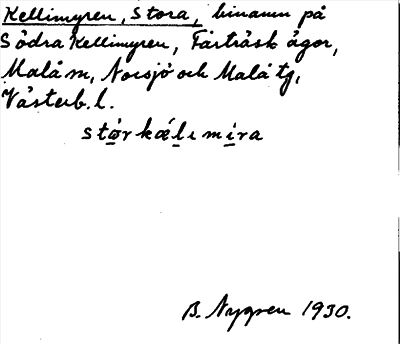 Kellimyren, Stora, binamn på
Södra Kellimyren, Fårträsk ägor,
Malå sn, Norsjö och Malå tg,
Västerb. l.
stórkǽlımíra
B. Nygren 1930.